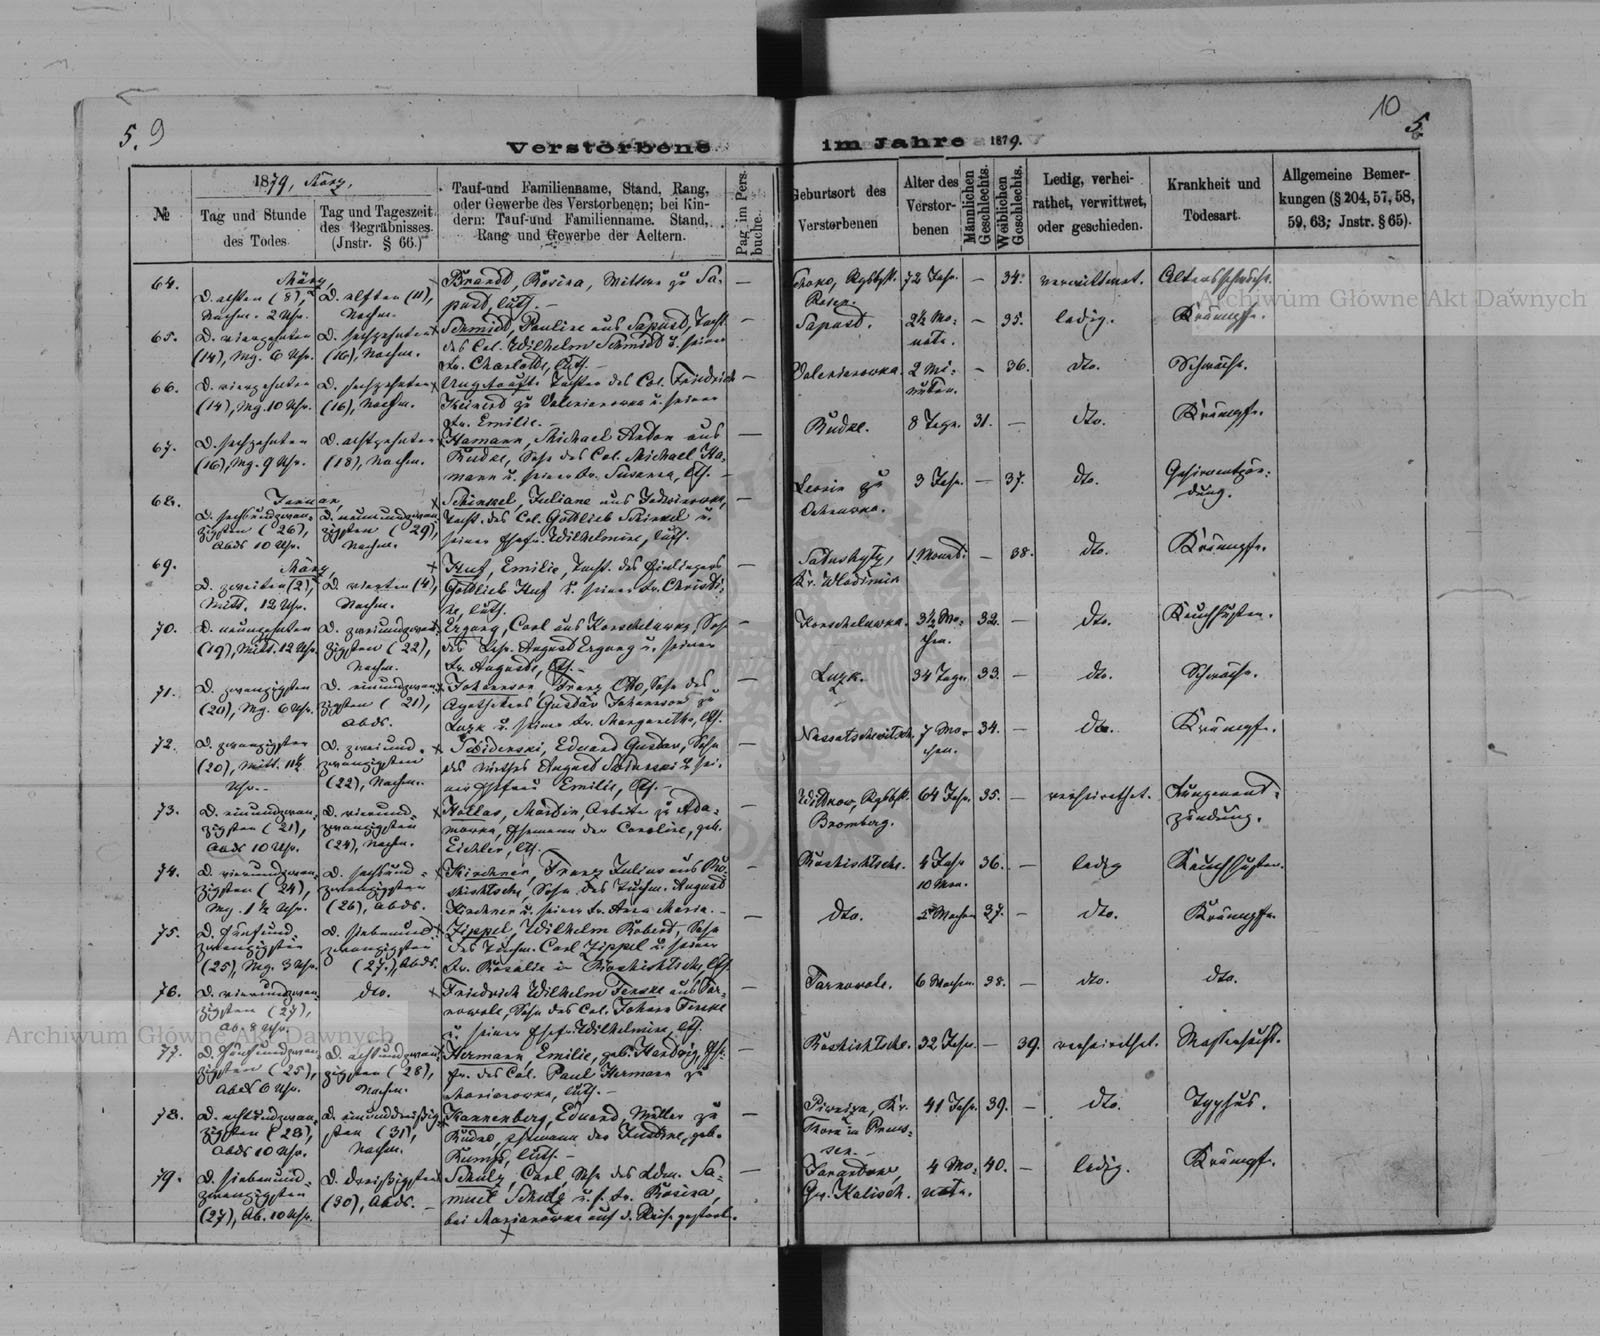 5. 9
10
5.
Verstorbene im Jahre 1879.
1879, März,
№
Tag und Stunde des Todes.
Tag und Tageszeit des Begräbnisses. (Jnstr. § 66.)
Tauf-und Familienname, Stand, Rang, oder Gewerbe des Verstorbenen; bei Kindern: Tauf-und Familienname. Stand, Rang und Gewerbe der Aeltern.
Pag. im Pers. buche.
Geburtsort des Verstorbenen
Alter des Verstorbenen
Männlichen Geschlechts.
Weiblichen Geschlechts.
Ledig, verheirathet, verwittwet, oder geschieden.
Krankheit und Todesart.
Allgemeine Bemerkungen (§ 204, 57, 58, 59, 63; Jnstr. § 65).
64.
März,
D. achten (8),
Nachm. 2 Uhr.
D. elften (11),
Nachm.
Brandt, Rosina, Wittwe zu Sa-
pust, luth. —
72 Jahr. — 34. verwittwet. Altersschwäche.
65.
D. vierzehnten
(14), Mg. 6 Uhr.
D. sechzehnten
(16), Nachm.
Schmidt, Pauline aus Sapust, Tocht.
des Col. Wilhelm Schmidt u. seiner
Fr. Charlotte, luth. —
Sapust. 2½ Mo-
nate. — 35. ledig. Krämpfe.
66.
D. vierzehnten
(14), Mg. 10 Uhr.
D. sechzehnten
(16), Nachm.
Ungetaufte Tochter des Col. Friedrich
zu Valerianowka u. seiner
Fr. Emilie. —
Valerianowka. 2 Mi-
nuten. — 36. dto. Schwäche.
67.
D. sechzehnten
(16), Mg. 9 Uhr.
D. achtzehnten
(18), Nachm.
Hamann, Michael Anton aus
Rudke, Sohn des Col. Michael Ha-
mann u. seiner Fr. Susanna, lth. —
Rudke. 8 Tage. 31. — dto. Krämpfe.
68.
Januar,
D. sechsundzwan-
zigsten (26),
Abds 10 Uhr.
D. neunundzwan-
zigsten (29),
Nachm.
Schinkel, Juliane aus
Tocht. des Col. Gottlieb Schinkel u.
seiner Ehefr. Wilhelmine, luth.
zu
3 Jahr. — 37. dto. Gehirnentzün-
dung.
69.
März,
D. zweiten (2),
Mitt. 12 Uhr.
D. vierten (4),
Nachm.
Huf, Emilie, Tocht. des Einliegers
Gottlieb Huf u. seiner Fr. Christi-
ne, luth.
Kr. Wladimir
1 Monat. — 38. dto. Krämpfe.
70.
D. neunzehnten
(19), Mitt. 12 Uhr.
D. zweiundzwan-
zigsten (22),
Nachm.
Ergang, Carl aus Koscheluwka, Sohn
des Lehr. August Ergang u. seiner
Fr. Auguste, lth. —
3½ Wo-
chen. 32. — dto. Keuchhusten.
71.
D. zwanzigsten
(20), Mg. 6 Uhr.
D. einundzwan-
zigsten (21),
Abds.
Johannson, Franz Otto, Sohn des
Apothekers Gustav Johannson zu
Luzk u. seiner Fr. Margarethe, lth.
Luzk. 34 Tage. 33. — dto. Schwäche.
72.
D. zwanzigsten
(20), Mitt. 11½
Uhr. —
D. zweiund-
zwanzigsten
(22), Nachm.
Eduard Gustav, Sohn
des Wirthes August u. sei-
ner Ehefrau Emilie, lth. —
7 Wo-
chen. 34. — dto. Krämpfe.
73.
D. einundzwan-
zigsten (21),
Abds 10 Uhr.
D. vierund-
zwanzigsten
(24), Nachm.
Kollas, Martin, Arbeiter zu Ada-
mowka, Ehemann der Caroline, geb.
Eichler, lth. —
Wittkow, Rgbbzk.
Bromberg.
64 Jahr. 35. — verheirathet. Lungenent-
zündung.
74.
D. vierundzwan-
zigsten (24),
Mg. 1½ Uhr.
D. sechsund-
zwanzigsten
(26), Abds.
Kirchner, Franz Julius aus Ro-
schischtsche, Sohn des Tuchm. August
Kirchner u. seiner Fr. Anna Maria. —
Roschischtsche. 4 Jahr
10 Mon. 36. — ledig Keuchhusten.
75.
D. fünfund-
zwanzigsten
(25), Mg. 3 Uhr.
D. siebenund-
zwanzigsten
(27), Abds.
Zippel, Wilhelm Robert, Sohn
des Tuchm. Carl Zippel u. seiner
Fr. Rosalie in Roschischtsche, lth.
dto. 5 Wochen 37. — dto. Krämpfe
76.
D. vierundzwan-
zigsten (24),
Ab. 8 Uhr.
dto.
Friedrich Wilhelm Fenske aus Tar-
nowole, Sohn des Col. Johann Fenske
u. seiner Ehefr. Wilhelmine, lth.
Tarnowole. 6 Wochen. 38. — dto. dto.
77.
D. fünfundzwan-
zigsten (25),
Abds 6 Uhr.
D. achtundzwan-
zigsten (28),
Nachm.
Hermann, Emilie, geb. Hartwig, Ehe-
fr. des Col. Paul Hermann zu
Marianowka, luth. —
Roschischtsche. 32 Jahr. — 39. verheirathet. Wassersucht.
78.
D. achtundzwan-
zigsten (28),
Abds 10 Uhr.
D. einunddreißig-
sten (31),
Nachm.
Kannenberg, Eduard, Müller zu
Ehemann der Justine, geb.
luth. —
Kr.
Thorn in Preus-
sen. —
41 Jahr. 39. — dto. Typhus.
79.
D. siebenund-
zwanzigsten
(27), Ab. 10 Uhr.
D. dreißigsten
(30), Abds. —
Schulz, Carl, Sohn des Ldm. Sa-
muel Schulz u. s. Fr. Rosina,
bei Marianowka auf d. Reise gestorb.
Gv. Kalisch.
4 Mo-
nate. 40. — ledig. Krämpfe.
Archiwum Główne Akt Dawnych
Archiwum Główne Akt Dawnych